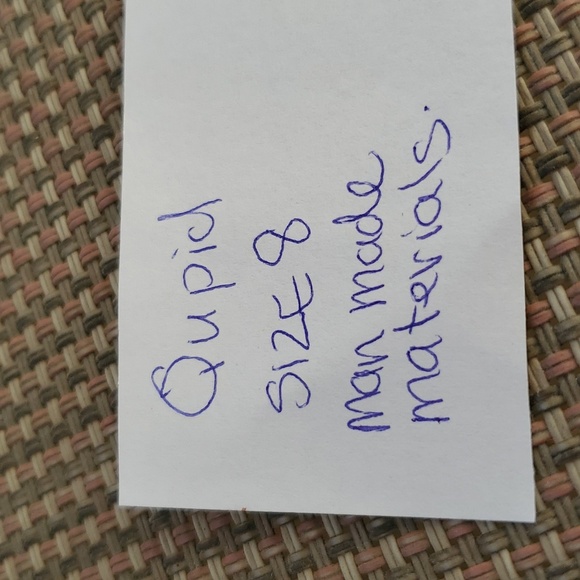 Qupid
SIZE 8
Man made
materials.